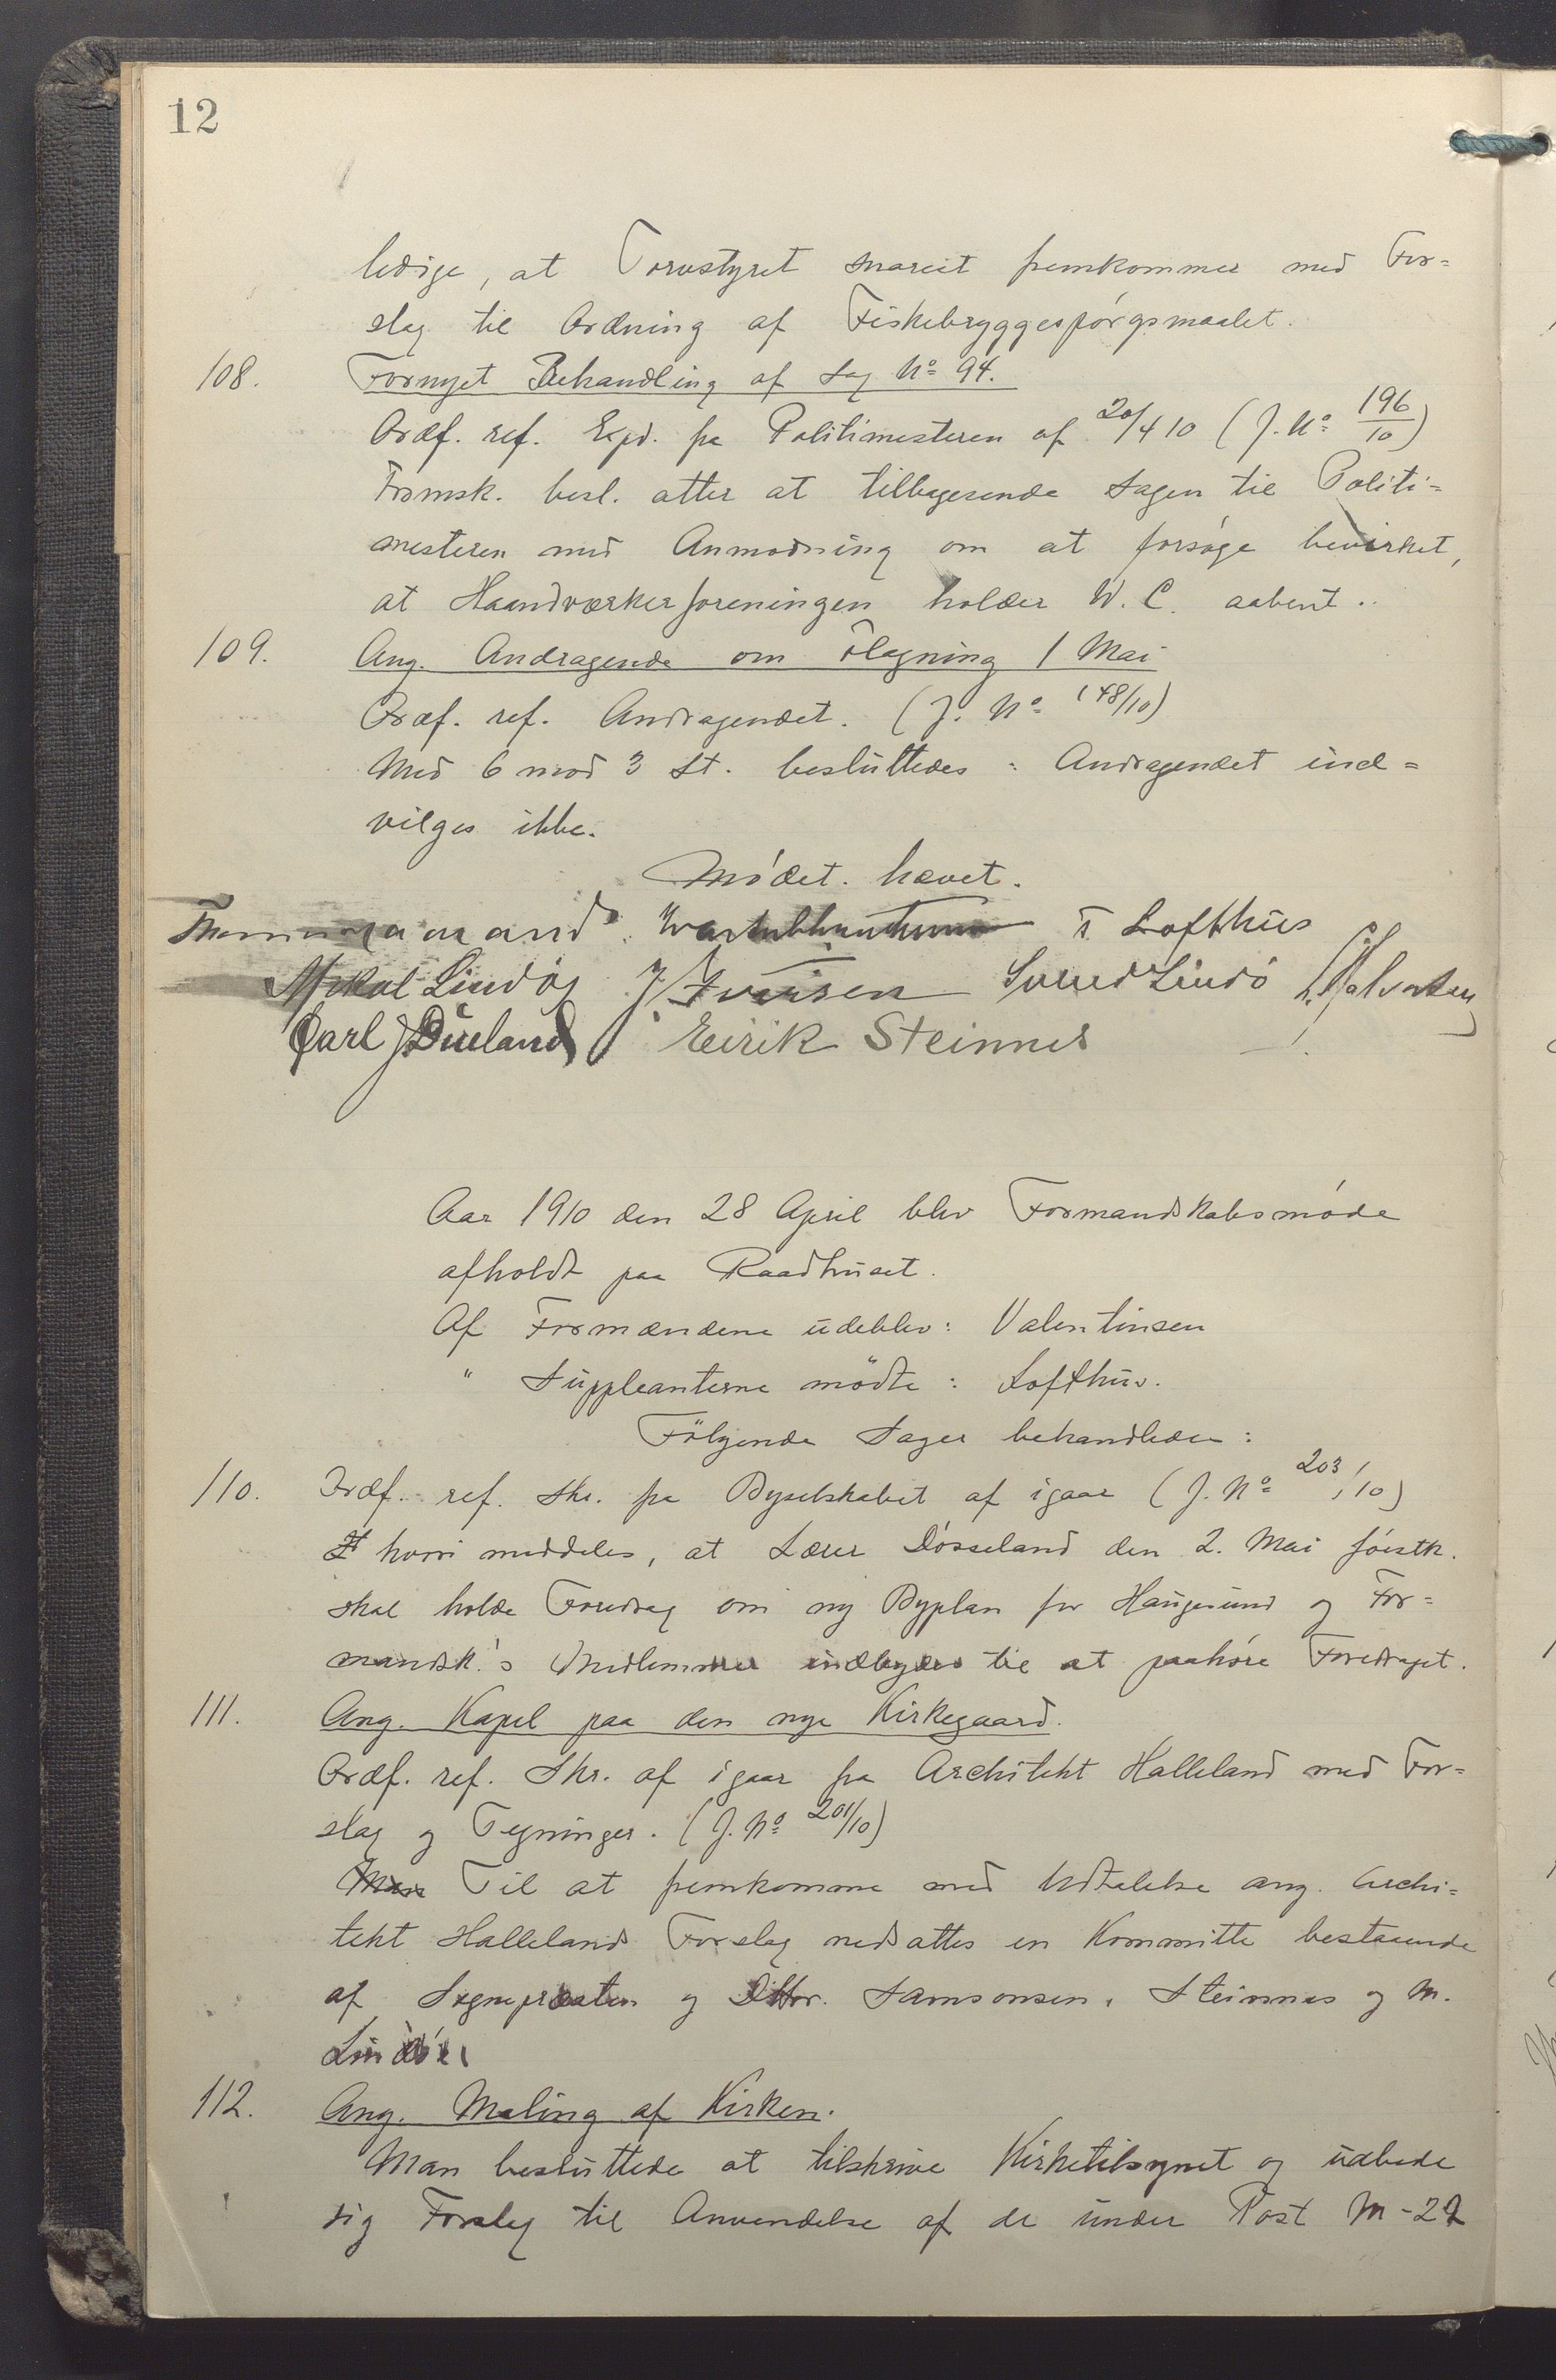 12
ledige, at Torvstyret snareit fremkommer med For=
slag til Ordning af Fiskebryggespørgsmaalet.
108. Fornyet Behandling af Sag No 94.
Ordf. ref. Expd. fra Politimesteren af 20/4 10 (J. No 196/10)
Formsk. besl. atter at tilbagesende Sagen til Politi=
mesteren med Anmodning om at forsøge bevirket,
at Haandværkerforeningen holder W. C. aabent..
109. Ang. Andragende om Ølagning 1 Mai
Ordf. ref. Andragendet. (J. No 148/10)
Med 6 mod 3 St. besluttedes: Andragendet ind=
vilges ikke.
Mødet hævet.
T. Lofthus
Mikal Lindøy J. Iversen Svend Lindø
Carl J. Dueland Eirik Steinnes
Aar 1910 den 28 April blev Formandskabsmøde
afholdt paa Raadhuset.
Af Formændene udeblev: Valentinsen
" Suppleanterne mødte: Lofthus.
Følgende Sager behandledes:
110. Ordf. ref. Skr. fra Byselskabet af igaar (J. No 203/10)
hvori meddeles, at Lærer Døsseland den 2. Mai førstk.
skal holde Foredrag om ny Byplan for Haugesund og For=
mandsk.'s Medlemmer indbydes til at paahøre Foredraget.
111. Ang. Kapel paa den nye Kirkegaard.
Ordf. ref. Skr. af igaar fra Architekt Halleland med For=
slag og Tegninger. (J. No 201/10)
Man Til at fremkomme med Udtalelse ang. Archi=
tekt Hallelands Forslag nedsattes en Kommitte bestaaende
af Sognepræsten og DHrr. Samsonsen, Steinnes og M.
Lindøe
112. Ang. Maling af Kirken.
Man besluttede at tilskrive Kirketilsynet og udbede
sig Forslag til Anvendelse af de under Post M-22